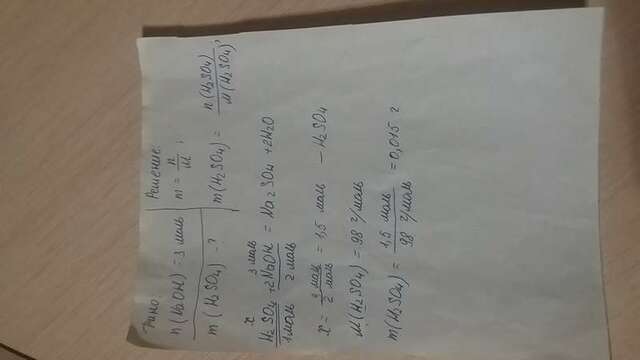 Дано:
n(NaOH) = 3 моль
m(H₂SO₄) - ?
Решение:
m = n/M ;
m(H₂SO₄) = n(H₂SO₄)/M(H₂SO₄) ;
x 3 моль
H₂SO₄ + 2NaOH = Na₂SO₄ + 2H₂O
1 моль 2 моль
x = 3 моль/2 моль = 1,5 моль - H₂SO₄
M(H₂SO₄) = 98 г/моль
m(H₂SO₄) = 1,5 моль/98 г/моль = 0,015 г